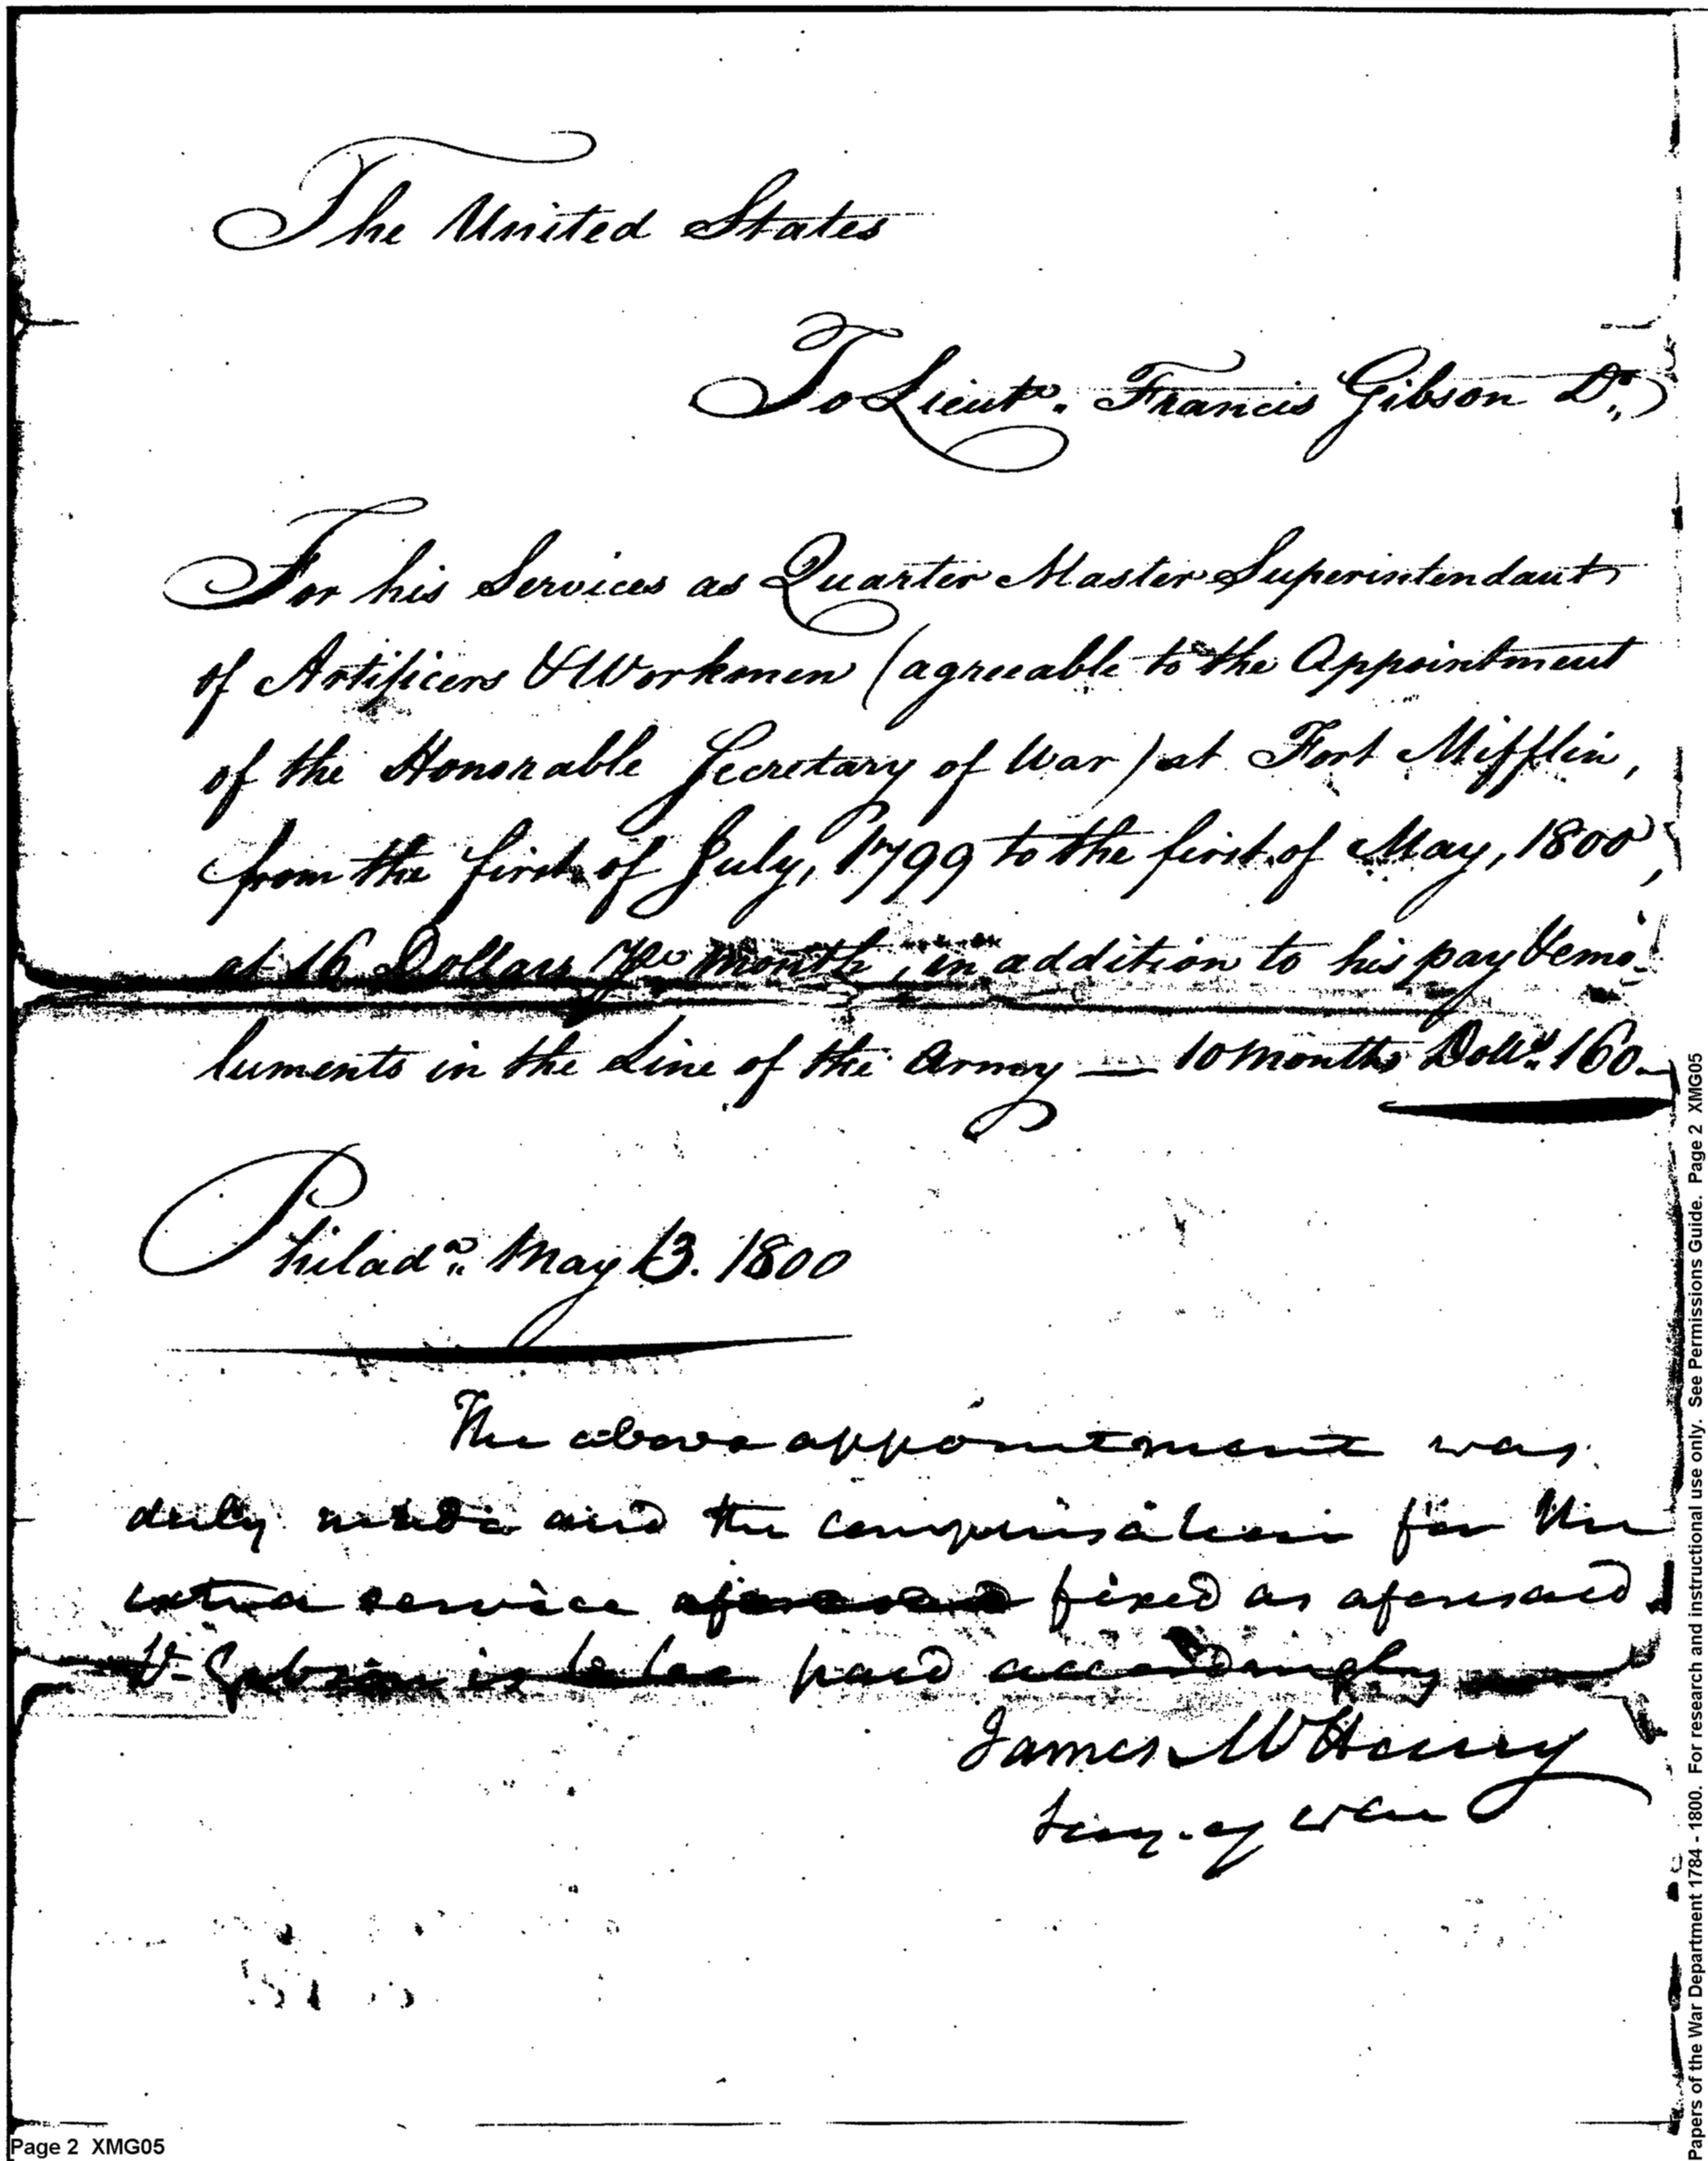 The United States
To Lieut.o Francis Gibson Dr.
For his Services as Quarter Master Superintendant
of Artificers & Workmen (agreeable to the Appointment
of the Honorable Secretary of War) at Fort Mifflin,
from the first of July, 1799 to the first of May, 1800,
at 16 Dollars per month, in addition to his pay & emo-
luments in the Line of the Army — 10 months Doll.s 160.
Philad.a May 13. 1800
The above appointment was
duly made and the compensation for the
extra service fixed as aforesaid
Lt. Gibson is to be paid accordingly
James McHenry
Secy. of War
Page 2 XMG05
Papers of the War Department 1784 - 1800. For research and instructional use only. See Permissions Guide. Page 2 XMG05